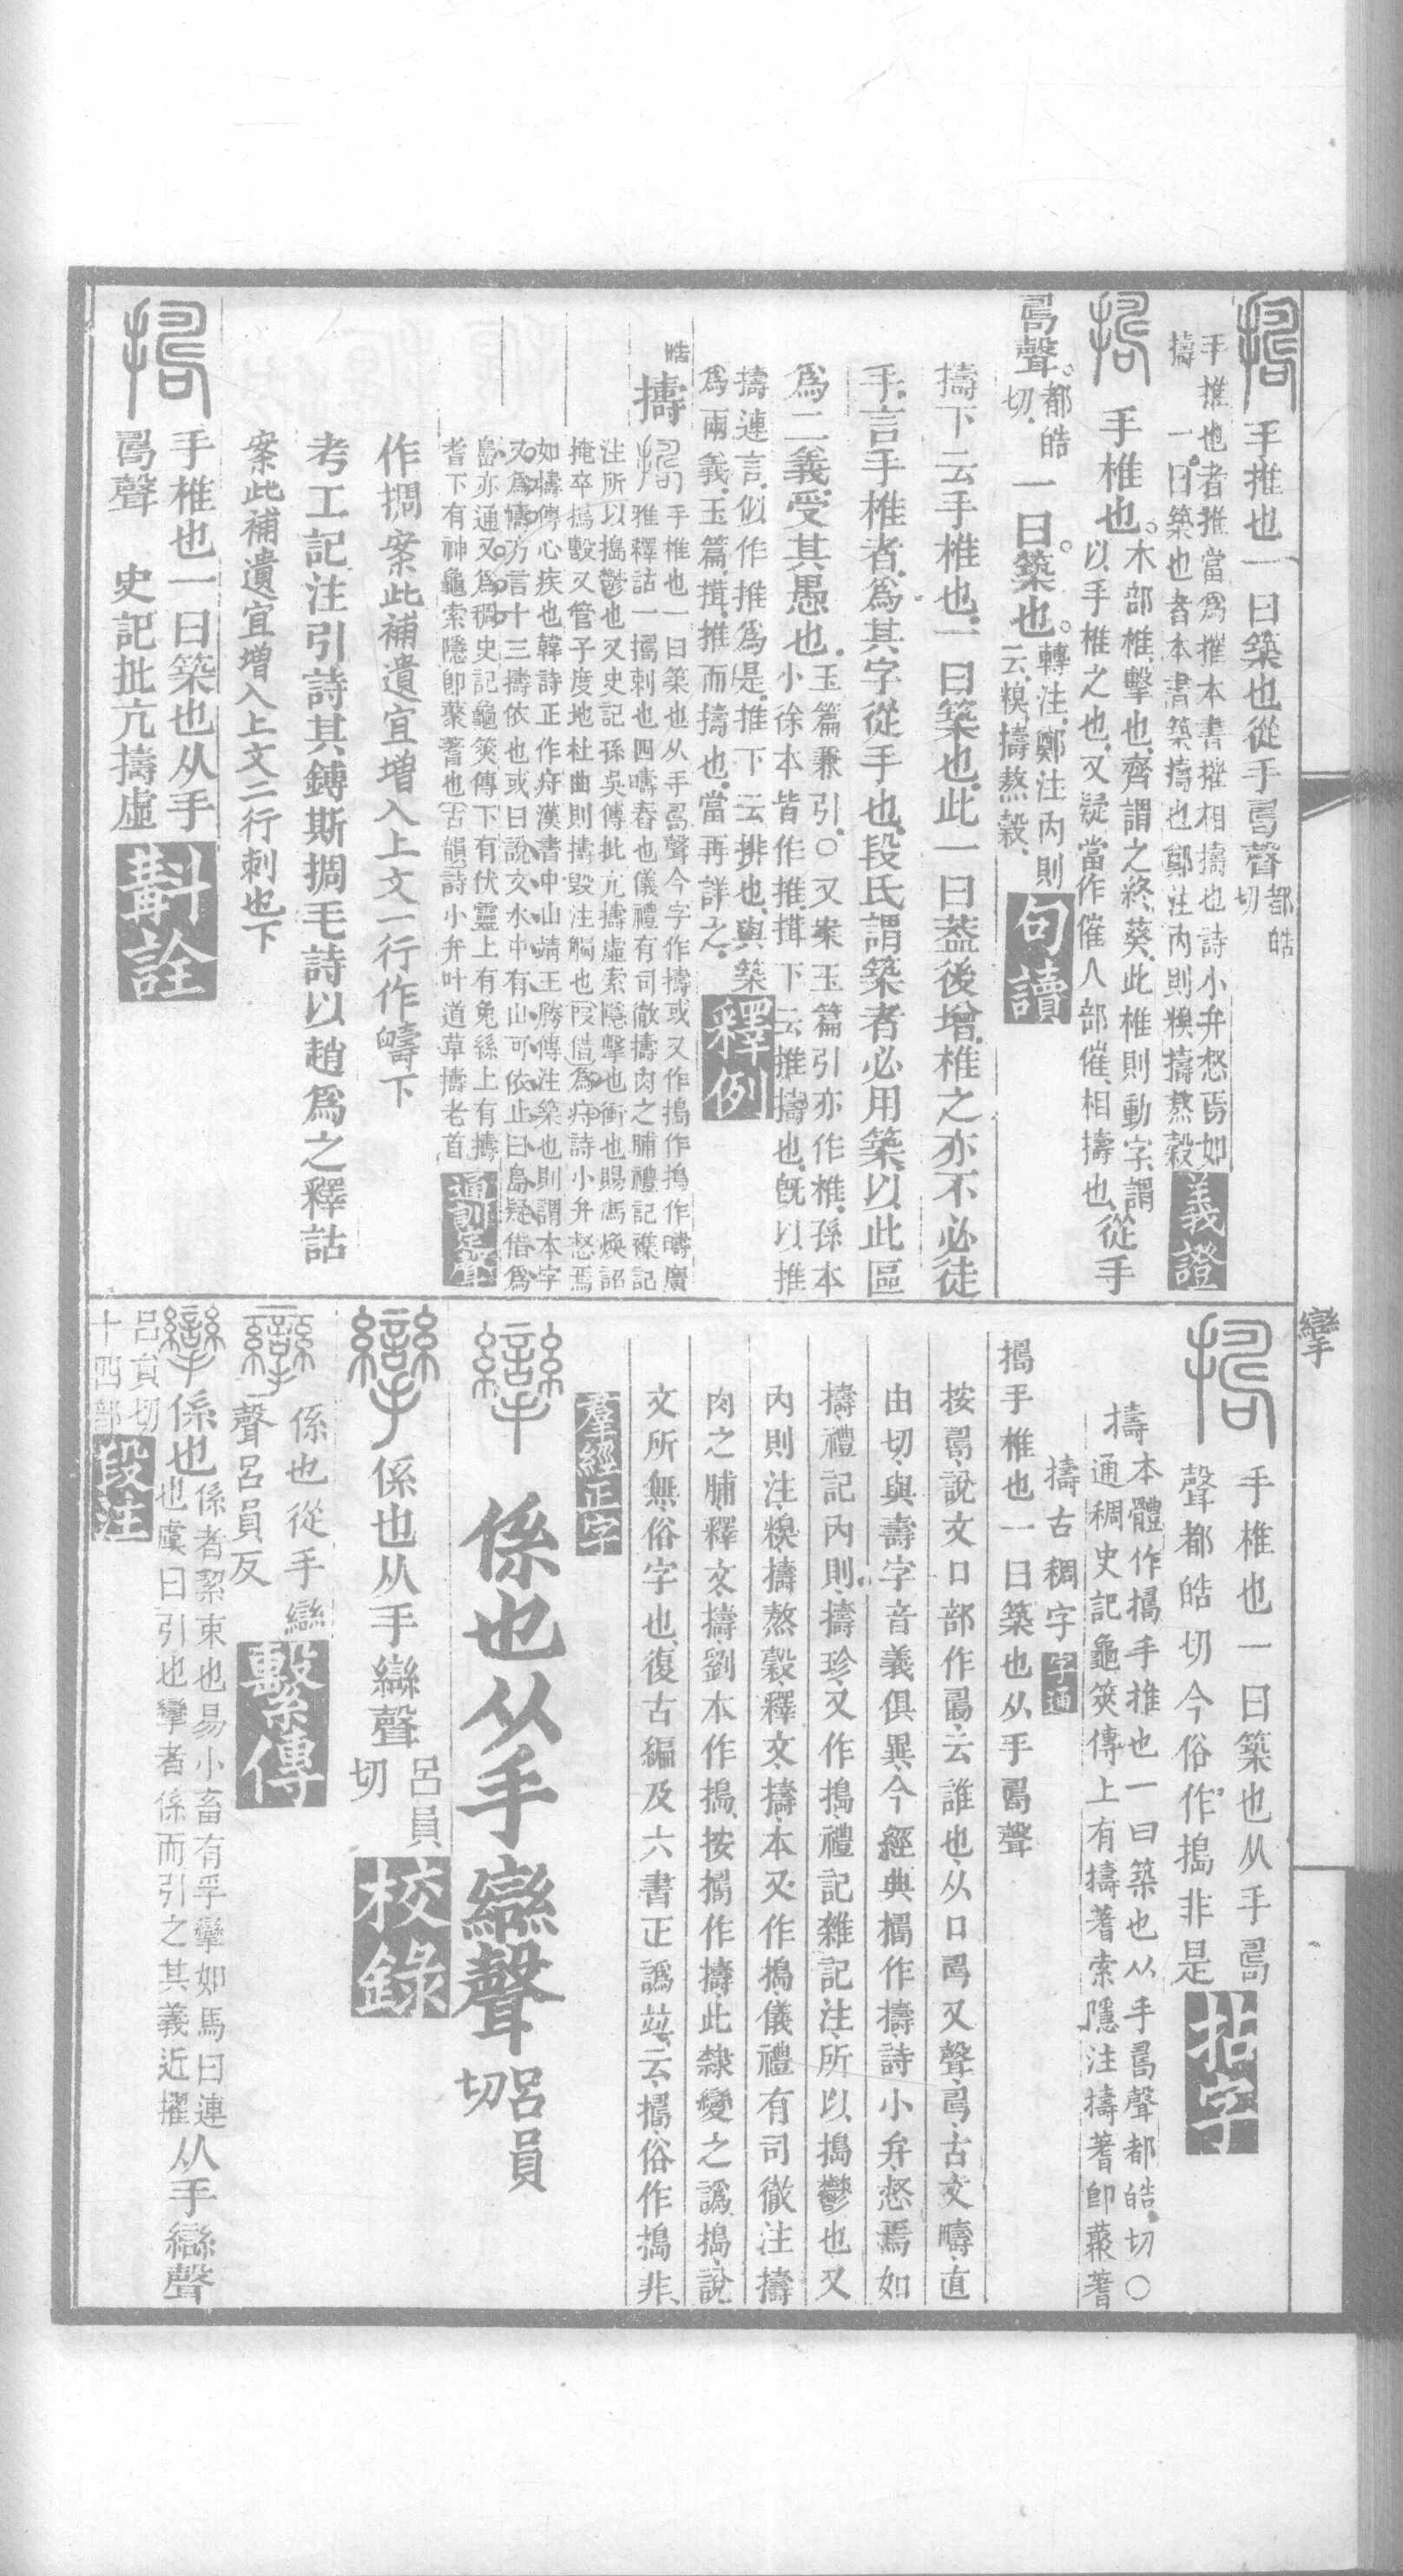 手推也一曰築也從手𠷎聲都皓切
手推也者推當爲摧本書摧相擣也詩小弁惄焉如
擣 一曰築也者本書築擣也鄭注內則糗擣熬穀
義證
手椎也木部椎擊也齊謂之終葵此椎則動字謂
以手椎之也又疑當作催人部催相擣也從手
𠷎聲都皓切一曰築也轉注鄭注內則云糗擣熬穀
句讀
擣下云手椎也一曰築也此一曰蓋後增椎之亦不必徒
手言手椎者爲其字從手也段氏謂築者必用築以此區
爲二義受其愚也玉篇兼引○又案玉篇引亦作椎孫本
小徐本皆作推搑下云推擣也旣以推
擣連言似作推爲是推下云排也與築
爲兩義玉篇搑推而擣也當再詳之
釋例
皓
擣
手椎也一曰築也从手𠷎聲今字作擣或又作搗作㨶作㿒廣
雅釋詁一擣刺也四㿒舂也儀禮有司徹擣肉之脯禮記雜記
注所以搗鬱也又史記孫吳傳批亢擣虛索隱擊也衝也賜馮煥詔
掩卒擣擊又管子度地杜曲則擣毀注觸也叚借爲疛詩小弁惄焉
如擣傳心疾也韓詩正作疛漢書中山靖王勝傳注築也則謂本字
又爲㦞方言十三擣依也或曰說文水中有山可依止曰島疑借爲
島亦通又爲稠史記龜筴傳下有伏靈上有兔絲上有擣
蓍下有神龜索隱卽藂蓍也古韻詩小弁叶道草擣老首
通訓定聲
作捣案此補遺宜增入上文一行作㿒下
考工記注引詩其鎛斯捣毛詩以趙爲之釋詁
案此補遺宜增入上文二行刺也下
手椎也一曰築也从手
𠷎聲 史記批亢擣虛
斠詮
攣
手椎也一曰築也从手𠷎
聲都皓切今俗作搗非是
拈字
擣本體作擣手推也一曰築也从手𠷎聲都皓切○
通稠史記龜筴傳上有擣蓍索隱注擣蓍卽藂蓍
擣古稠字
字通
擣手椎也一曰築也从手𠷎聲
按𠷎說文口部作𠷎云誰也从口𠃬又聲𠃬古文疇直
由切與壽字音義俱異今經典擣作擣詩小弁惄焉如
擣禮記內則擣珍又作搗禮記雜記注所以搗鬱也又
內則注糗擣熬穀釋文擣本又作搗儀禮有司徹注擣
肉之脯釋文擣劉本作搗按擣作擣此隸變之譌搗說
文所無俗字也復古編及六書正譌竝云擣俗作搗非
羣經正字
係也从手䜌聲呂員切
係也从手䜌聲呂員切
校錄
係也從手䜌
聲呂員反
繫傳
係也係者絜束也易小畜有孚攣如馬曰連
也虞曰引也攣者係而引之其義近擢从手䜌聲
呂員切
十四部
段注